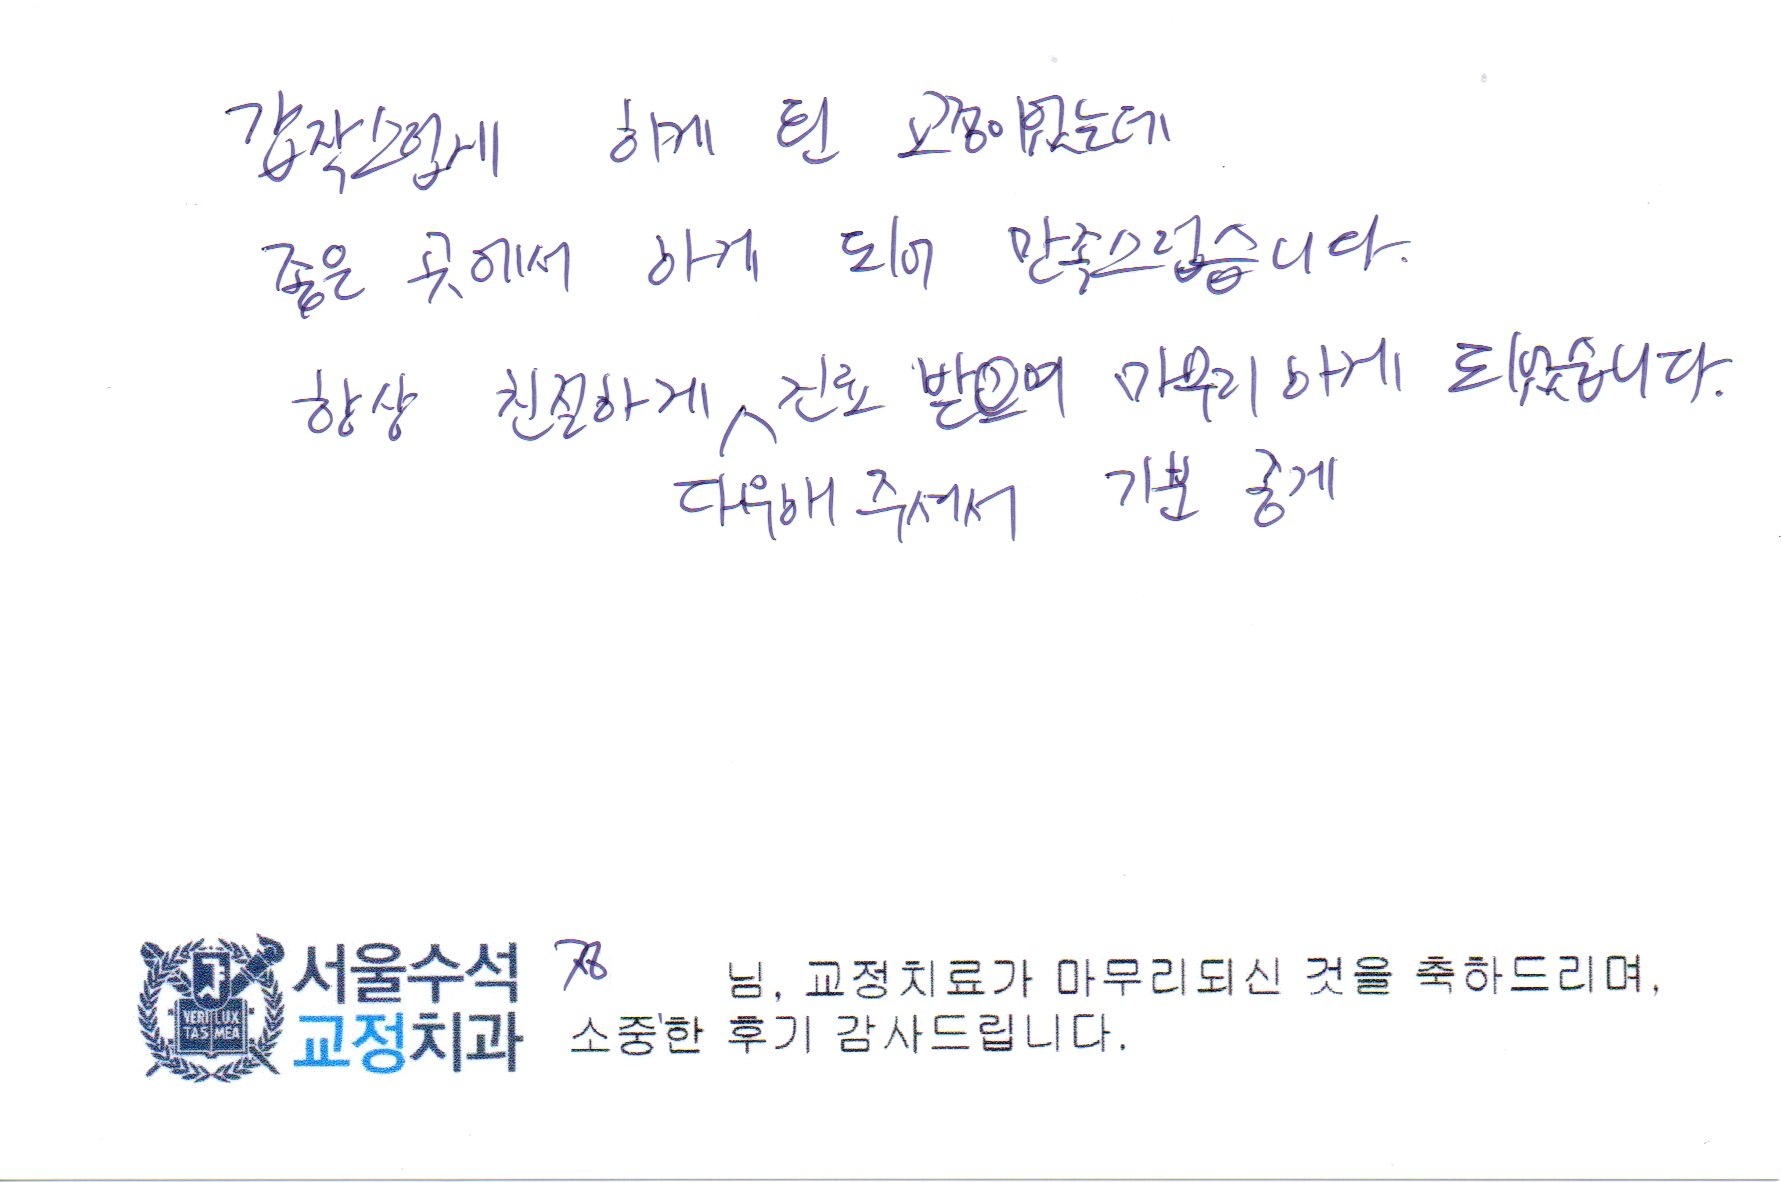 갑작스럽게 하게 된 교정이었는데
좋은 곳에서 하게 되어 만족스럽습니다.
항상 친절하게 진료 받으며 마무리 하게 되었습니다.
대우해 주셔서 기분 좋게
VERI LUX
TAS MEA
서울수석
교정치과
정 님, 교정치료가 마무리되신 것을 축하드리며,
소중한 후기 감사드립니다.